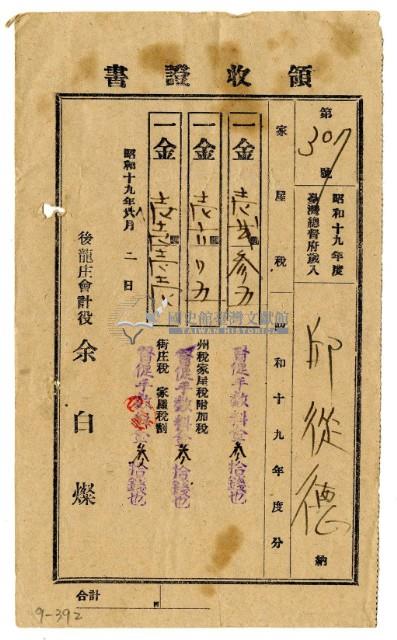 領收證書
第307號
昭和十九年度
臺灣總督府歲入
邱從德 納
家屋稅 昭和十九年度分
一金
督促手數料金參拾錢也
一金
州稅家屋稅附加稅
督促手數料金參拾錢也
一金
街庄稅 家屋稅割
督促手數料金參拾錢也
昭和十九年 月二日
後龍庄會計役 余白燦
合計 圓
國史館臺灣文獻館
TAIWAN HISTORICA
9-392